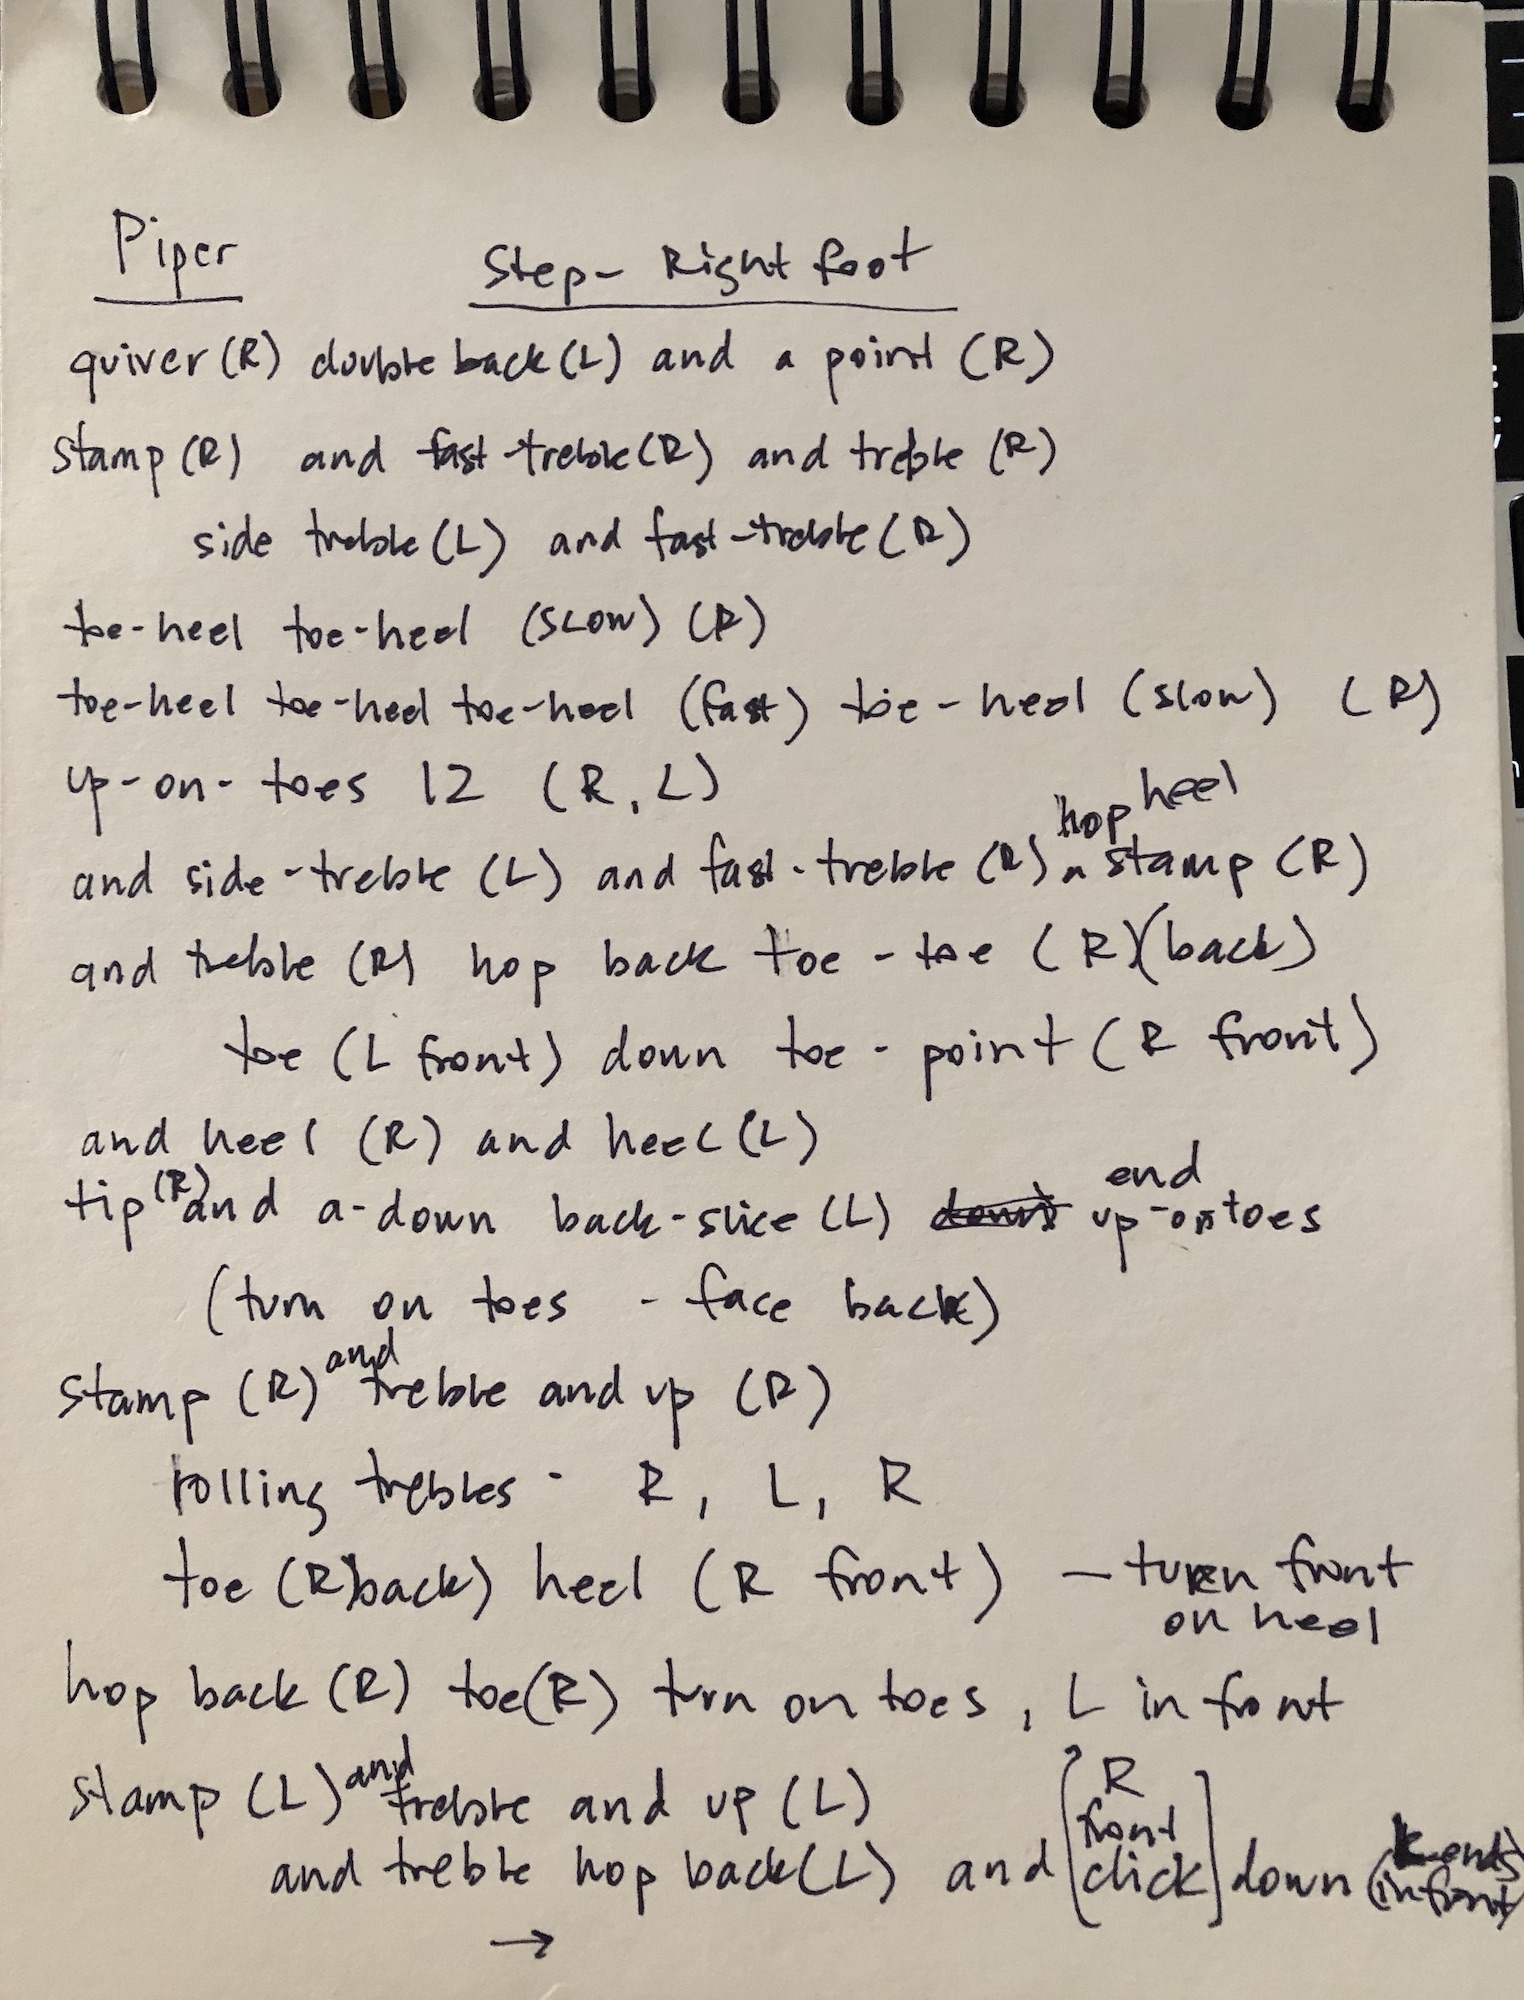 Piper Step- Right foot
quiver (R) double back (L) and a point (R)
stamp (R) and fast-treble (R) and treble (R)
side treble (L) and fast-treble (R)
toe-heel toe-heel (SLOW) (R)
toe-heel toe-heel toe-heel (fast) toe-heel (slow) (R)
up-on-toes 12 (R, L)
hop heel
and side-treble (L) and fast-treble (R) ^ stamp (R)
and treble (R) hop back toe-toe (R)(back)
toe (L front) down toe-point (R front)
and heel (R) and heel (L)
end
tip (R) and a-down back-slice (L) up-on toes
(turn on toes - face back)
stamp (R) and treble and up (R)
rolling trebles - R, L, R
toe (R)back) heel (R front) — turn front
on heel
hop back (R) toe(R) turn on toes, L in front
stamp (L) and treble and up (L)
and treble hop back (L) and [R front click] down (ends in front)
→